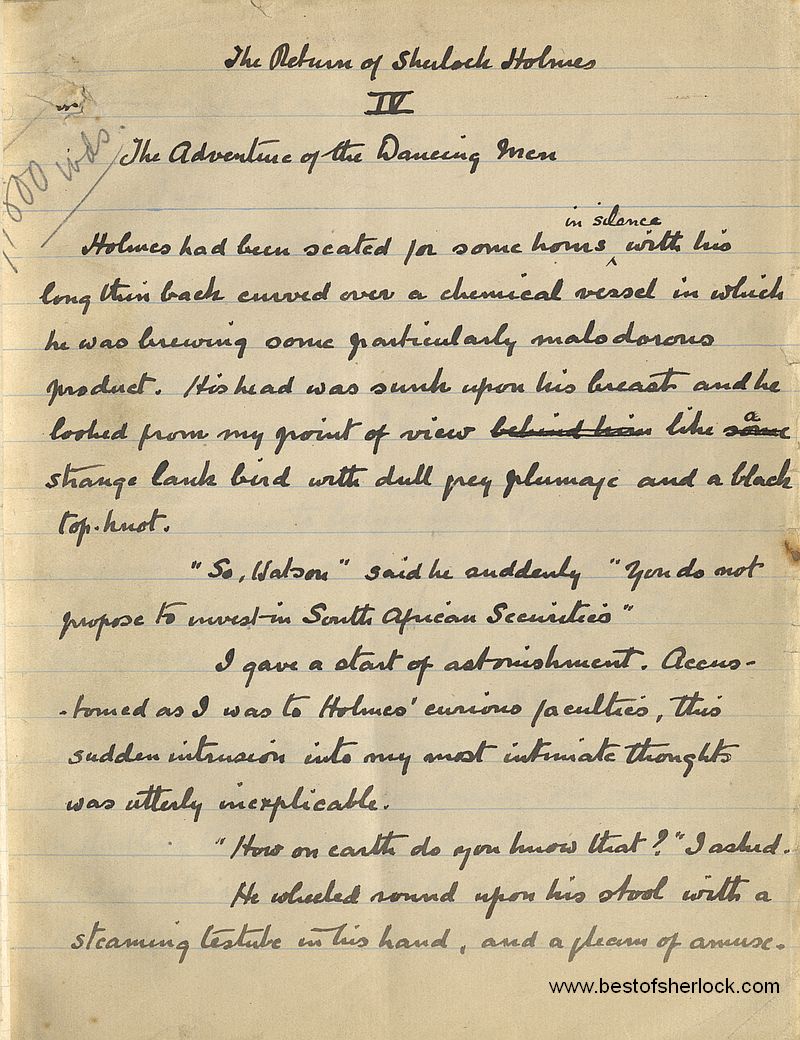 The Return of Sherlock Holmes
IV
The Adventure of the Dancing Men
11000 wds.
in silence
Holmes had been seated for some hours with his
long thin back curved over a chemical vessel in which
he was brewing some particularly malodorous
product. His head was sunk upon his breast and he
looked from my point of view behind him like some a
strange lank bird with dull grey plumage and a black
top-knot.
"So, Watson" said he suddenly "You do not
propose to invest in South African Securities"
I gave a start of astonishment. Accus-
-tomed as I was to Holmes' curious faculties, this
sudden intrusion into my most intimate thoughts
was utterly inexplicable.
"How on earth do you know that?" I asked.
He wheeled round upon his stool with a
steaming testube in his hand, and a gleam of amuse-
www.bestofsherlock.com